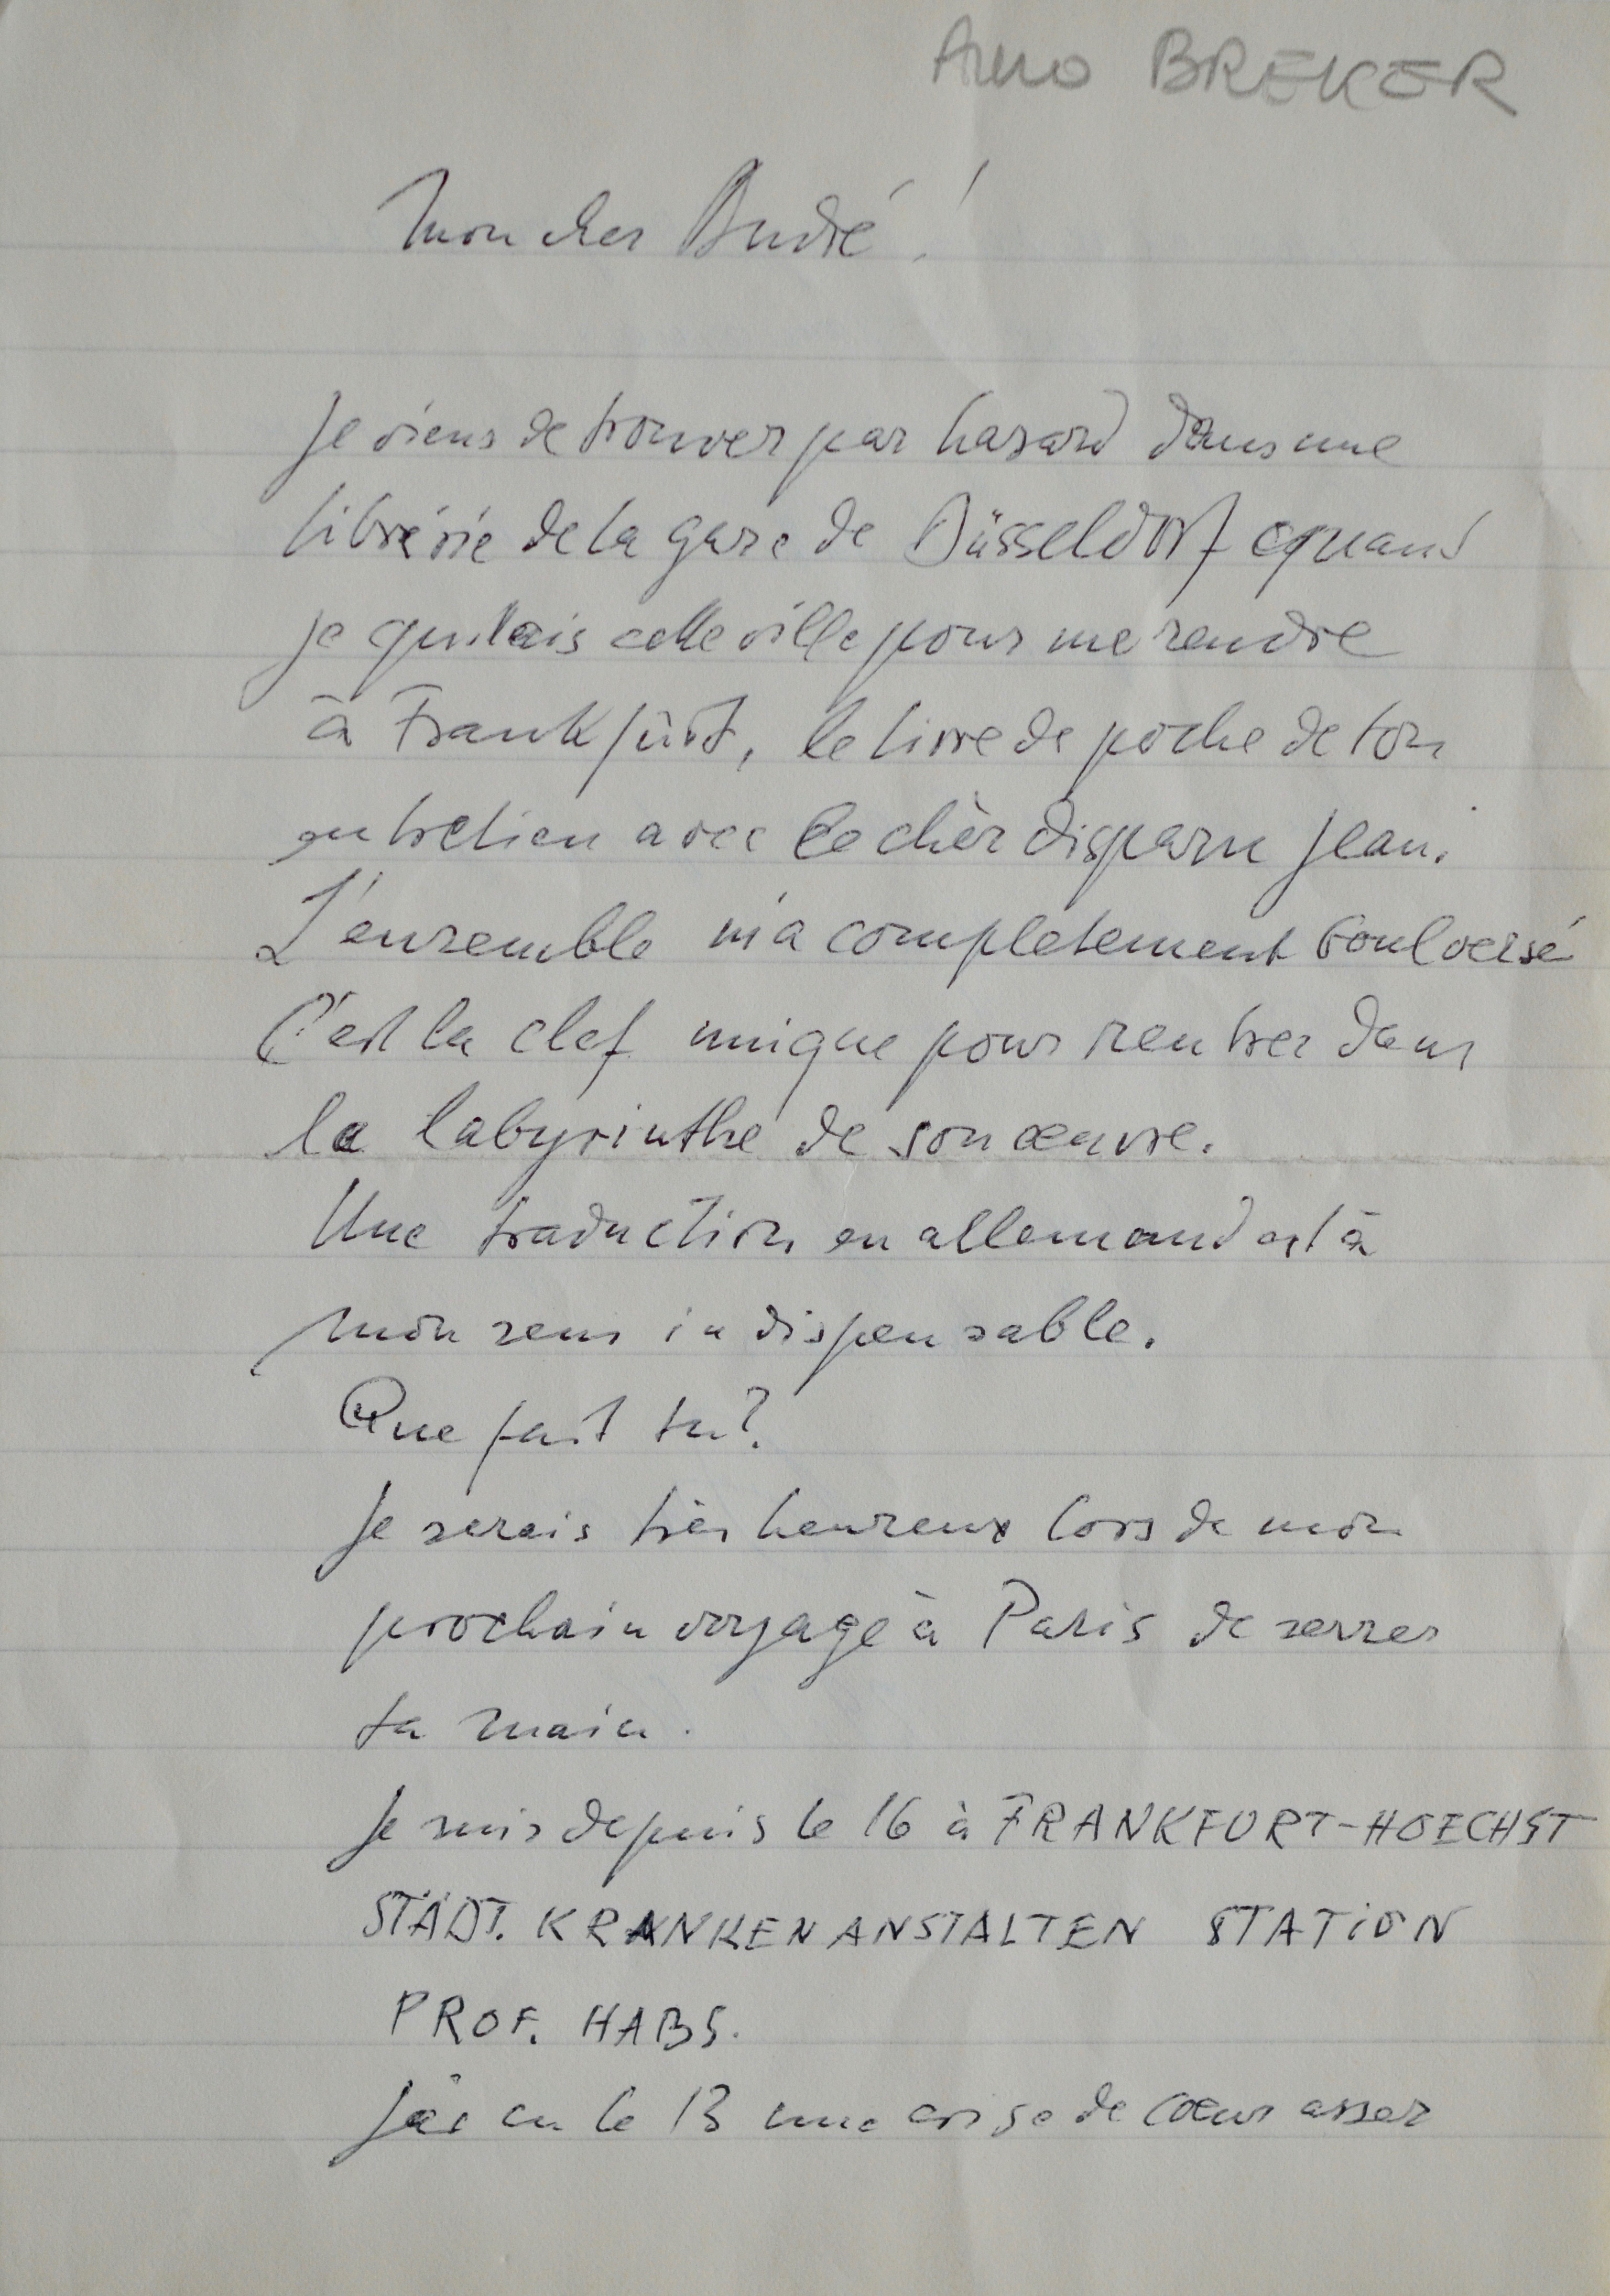 Arno BREKER
Mon cher André !
Je viens de trouver par hasard dans une
librérie de la gare de Düsseldorf quand
je quitais cette ville pour me rendre
à Frankfûrt, le livre de poche de ton
entretien avec le chèr disparu Jean.
L'ensemble m'a completement boulversé
C'est la clef unique pour rentrer dans
le labyrinthe de son œuvre.
Une traduction en allemand est à
mon sens indispensable.
Que fait tu?
Je serais très heureux lors de mon
prochain voyage à Paris de serrer
ta main.
Je suis depuis le 16 à FRANKFURT-HOECHST
STÄDT. KRANKENANSTALTEN STATION
PROF. HABS.
J'ai eu le 13 une crise de cœur assez